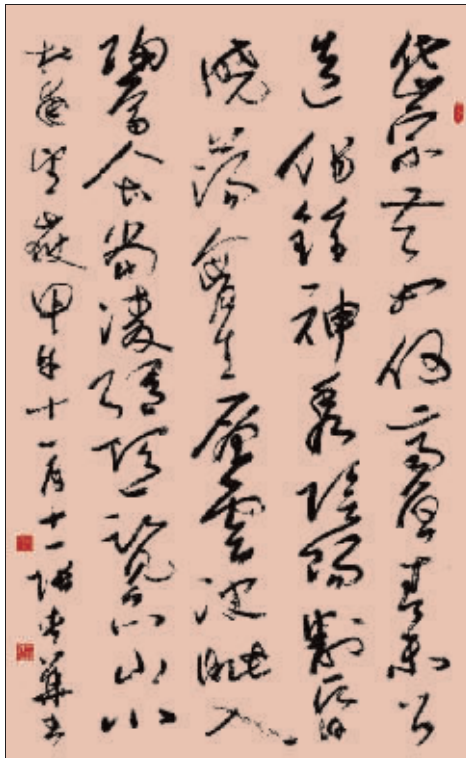 岱宗夫如何齊魯青未了
造化鍾神秀陰陽割昏
曉蕩胸生層雲決眦入
歸鳥會當凌絕頂一覽眾山小
杜甫望嶽甲午十一月十一張華書